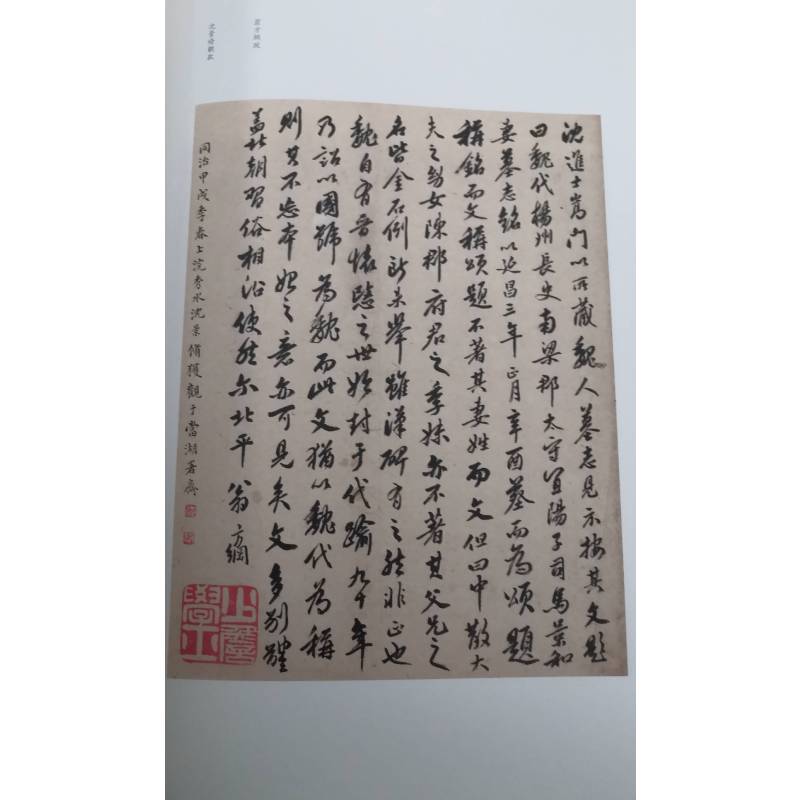 翁方綱跋
沈景脩觀款
沈進士嵩門以所藏魏人墓志見示按其文題
曰魏代楊州長史南梁郡太守宜陽子司馬景和
妻墓志銘以延昌三年正月辛酉葬而為頌題
稱銘而文稱頌題不著其妻姓而文但曰中散大
夫之幼女陳郡府君之季妹亦不著其父兄之
名皆金石例所未舉雖漢碑有之然非正也
魏自有晉懷愍之世始封于代踰九十年
乃詔以國號為魏而此文猶以魏代為稱
則其不忘本始之意亦可見矣文多別體
蓋北朝習俗相沿使然尔北平翁方綱
同治甲戌季春上浣秀水沈景脩獲觀于當湖署齋